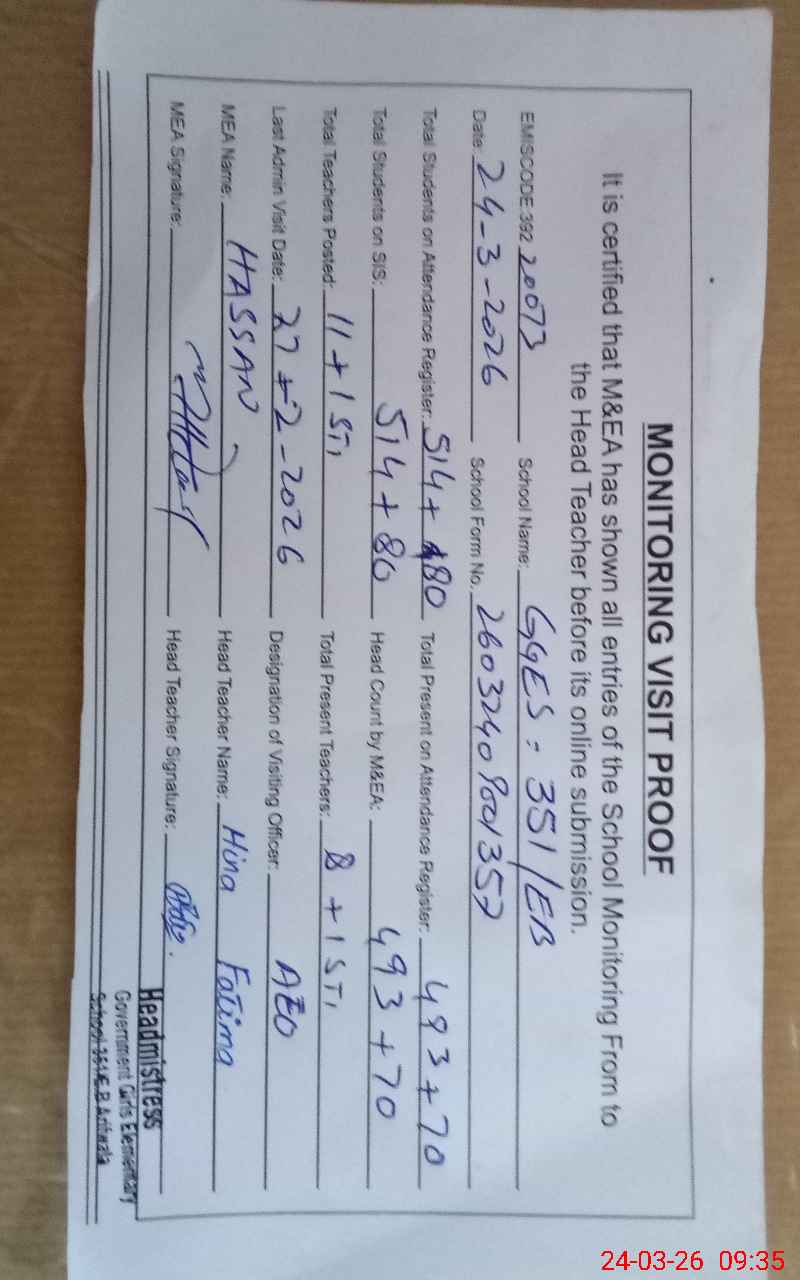 MONITORING VISIT PROOF
It is certified that M&EA has shown all entries of the School Monitoring From to
the Head Teacher before its online submission.
EMISCODE 392 20073 School Name: GGES : 351/EB
Date: 24-3-2026 School Form No. 26032409001357
Total Students on Attendance Register: 514+80 Total Present on Attendance Register: 493+70
Total Students on SIS: 514+80 Head Count by M&EA: 493+70
Total Teachers Posted: 11+1 STI Total Present Teachers: 8+1 STI
Last Admin Visit Date: 27-2-2026 Designation of Visiting Officer: AEO
MEA Name: HASSAN Head Teacher Name: Hina Fatima
MEA Signature: Head Teacher Signature:
Headmistress
Government Girls Elementary
School 351/E.B Arifwala
24-03-26 09:35